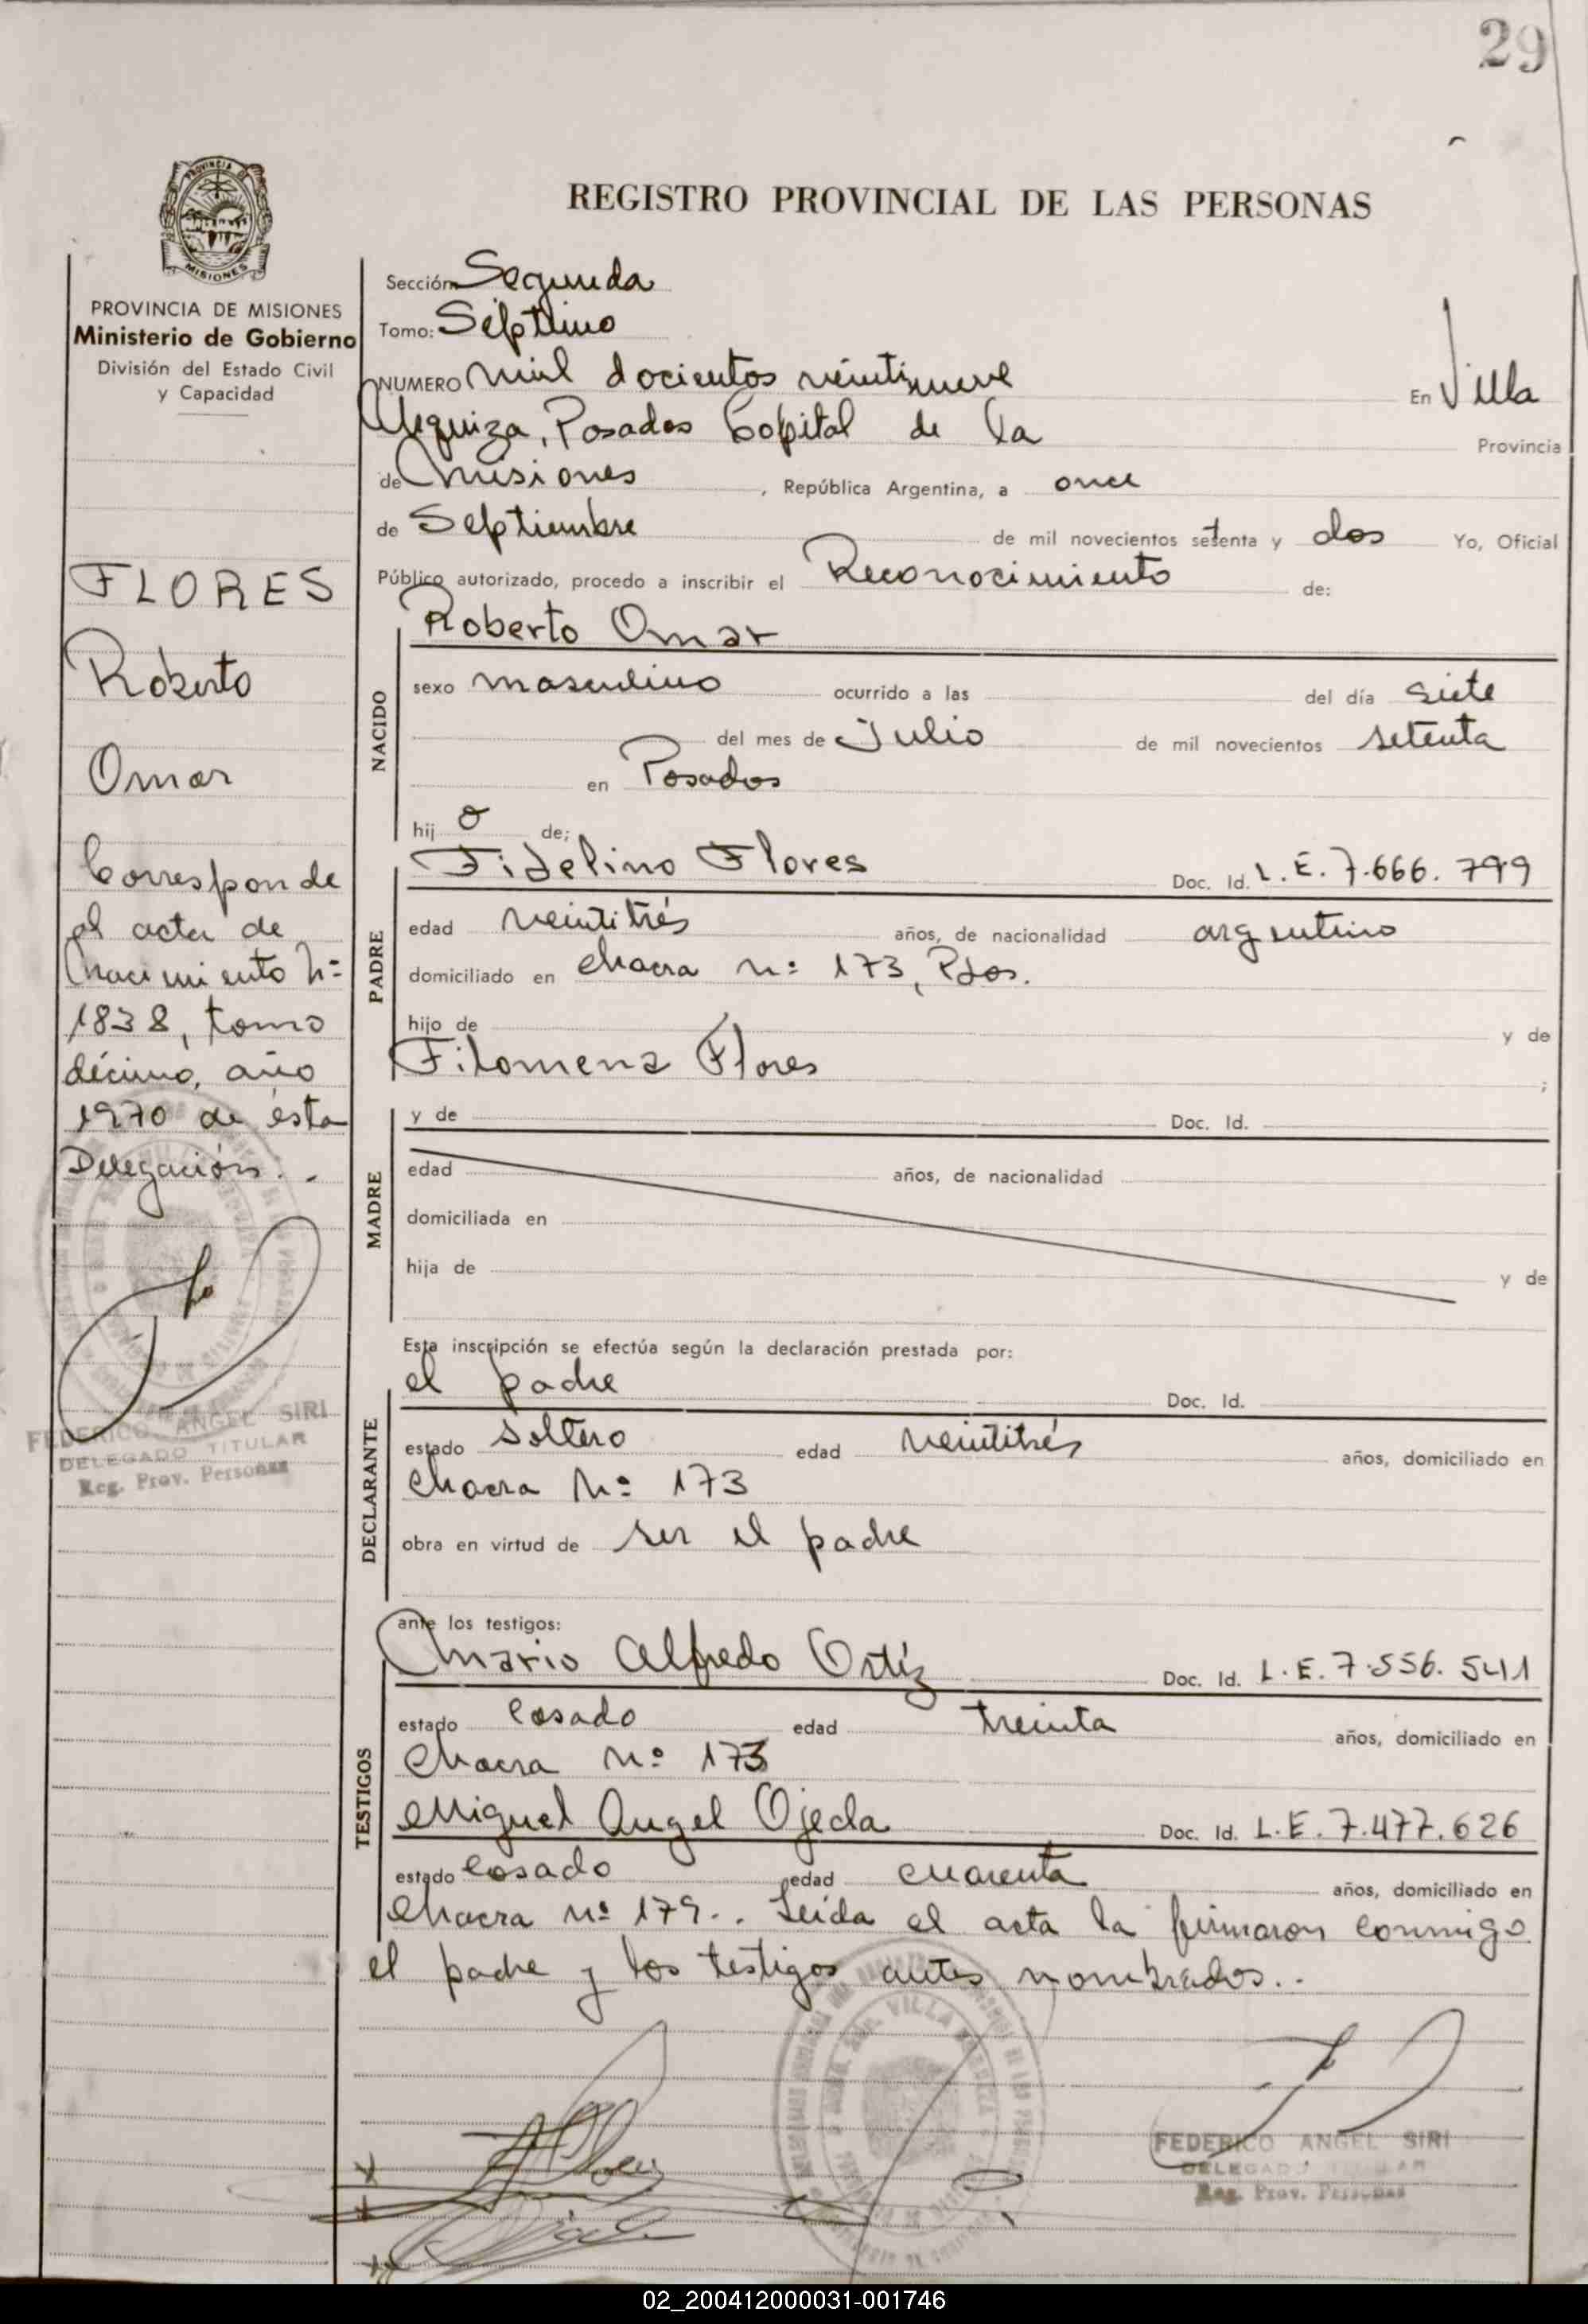 29
REGISTRO PROVINCIAL DE LAS PERSONAS
MISIONES
PROVINCIA DE MISIONES
Ministerio de Gobierno
División del Estado Civil
y Capacidad
FLORES
Roberto
Omar
Corresponde
al acta de
Nacimiento Nº
1838, tomo
décimo, año
1970 de ésta
Delegación.-
FEDERICO ANGEL SIRI
DELEGADO TITULAR
Reg. Prov. Personas
Sección Segunda
Tomo: Séptimo
NUMERO Mil docientos veintinueve En Villa
Urquiza, Posadas Capital de la Provincia
de Misiones, República Argentina, a once
de Septiembre de mil novecientos setenta y dos Yo, Oficial
Público autorizado, procedo a inscribir el Reconocimiento de:
NACIDO
Roberto Omar
sexo masculino ocurrido a las del día siete
del mes de Julio de mil novecientos setenta
en Posadas
hij o de;
PADRE
Fidelino Flores Doc. Id. L.E. 7.666.799
edad veintitrés años, de nacionalidad argentino
domiciliado en chacra nº 173, Pdas.
hijo de y de
Filomena Flores ;
MADRE
y de Doc. Id.
edad años, de nacionalidad
domiciliada en
hija de y de
Esta inscripción se efectúa según la declaración prestada por:
DECLARANTE
el padre Doc. Id.
estado soltero edad veintitrés años, domiciliado en
chacra Nº 173
obra en virtud de ser el padre
ante los testigos:
TESTIGOS
Mario Alfredo Ortíz Doc. Id. L.E. 7.556.541
estado casado edad treinta años, domiciliado en
chacra nº 173
Miguel Angel Ojeda Doc. Id. L.E. 7.477.626
estado casado edad cuarenta años, domiciliado en
chacra nº 179.- Leída el acta la firmaron conmigo
el padre y los testigos antes nombrados.-
FEDERICO ANGEL SIRI
DELEGADO TITULAR
Reg. Prov. Personas
02_200412000031-001746